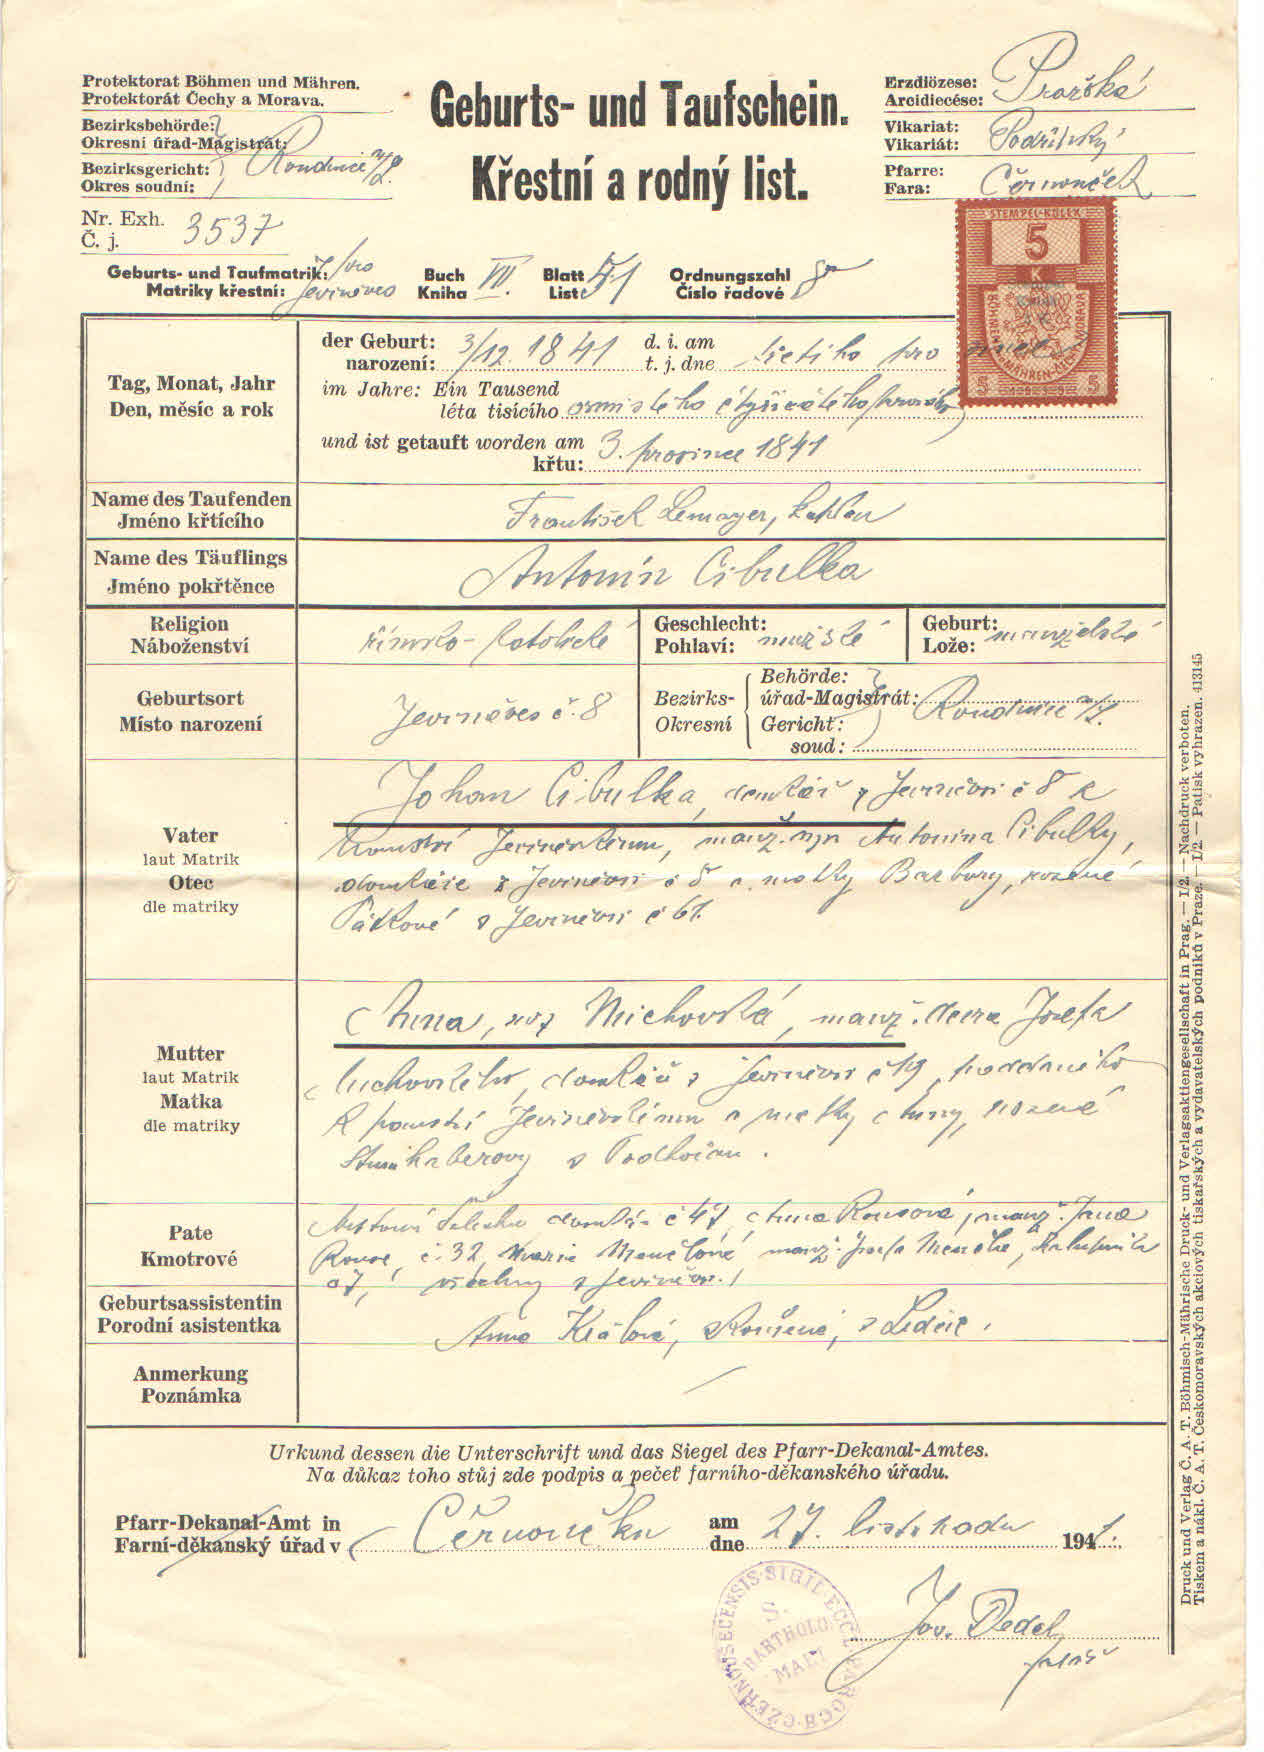 Protektorat Böhmen und Mähren.
Protektorát Čechy a Morava.
Bezirksbehörde:
Okresní úřad-Magistrát:
Roudnice n/L
Bezirksgericht:
Okres soudní:
Nr. Exh.
Č. j.
3537
Geburts- und Taufschein.
Křestní a rodný list.
Erzdiözese:
Arcidiecése:
Pražská
Vikariat:
Vikariát:
Podřipský
Pfarre:
Fara:
Černouček
Geburts- und Taufmatrik:
Matriky křestní:
pro Jeviněves
Buch
Kniha
VII.
Blatt
List
51
Ordnungszahl
Číslo řadové
8
STEMPEL-KOLEK
5
K
BÖHMEN-MÄHREN
ČECHY-MORAVA
5 1939 5
Tag, Monat, Jahr
Den, měsíc a rok
der Geburt:
narození:
3/12. 1841
d. i. am
t. j. dne
třetího pro
im Jahre: Ein Tausend
léta tisícího
osmistého čtyřicátého prvního
und ist getauft worden am
křtu:
3. prosince 1841
Name des Taufenden
Jméno křtícího
František Lemayer, kaplan
Name des Täuflings
Jméno pokřtěnce
Antonín Cibulka
Religion
Náboženství
římsko-katolické
Geschlecht:
Pohlaví:
mužské
Geburt:
Lože:
manželské
Geburtsort
Místo narození
Jeviněves č. 8
Bezirks-
Okresní
Behörde:
úřad-Magistrát:
Gericht:
soud:
Roudnice n/L.
Vater
laut Matrik
Otec
dle matriky
Johan Cibulka, domkář z Jeviněvsi č 8 k
panství Jeviněvskému, manž. syn Antonína Cibulky,
domkáře z Jeviněvsi č 8 a matky Barbory, rozené
Pátkové z Jeviněvsi č 61.
Mutter
laut Matrik
Matka
dle matriky
Anna, roz Michovská, manž. dcera Josefa
Michovského, domkáře z Jeviněvsi č 19, poddaného
k panství Jeviněvskému a matky Anny, rozené
z
Pate
Kmotrové
Antonín domkář č 47, Anna Rousová, manž. Jana
Rouse, č. 32, Marie Menclová, manž. Josefa Mencla,
č 7, všichni z Jeviněvsi.
Geburtsassistentin
Porodní asistentka
Anna Králová, zkoušená, z Ledčic.
Anmerkung
Poznámka
Urkund dessen die Unterschrift und das Siegel des Pfarr-Dekanal-Amtes.
Na důkaz toho stůj zde podpis a pečeť farního-děkanského úřadu.
Pfarr-Dekanal-Amt in
Farní-děkanský úřad v
Černoučku
am
dne
27. listopadu
1941.
SIGIL. ECCL. PAROCH. CZERNOUSECENSIS
S.
BARTHOLO
MAEI
Jos. Dedek
farář
Druck und Verlag Č. A. T. Böhmisch-Mährische Druck- und Verlagsaktiengesellschaft in Prag. — I/2. — Nachdruck verboten.
Tiskem a nákl. Č. A. T. Českomoravských akciových tiskařských a vydavatelských podniků v Praze. — I/2. — Patisk vyhrazen. 413145